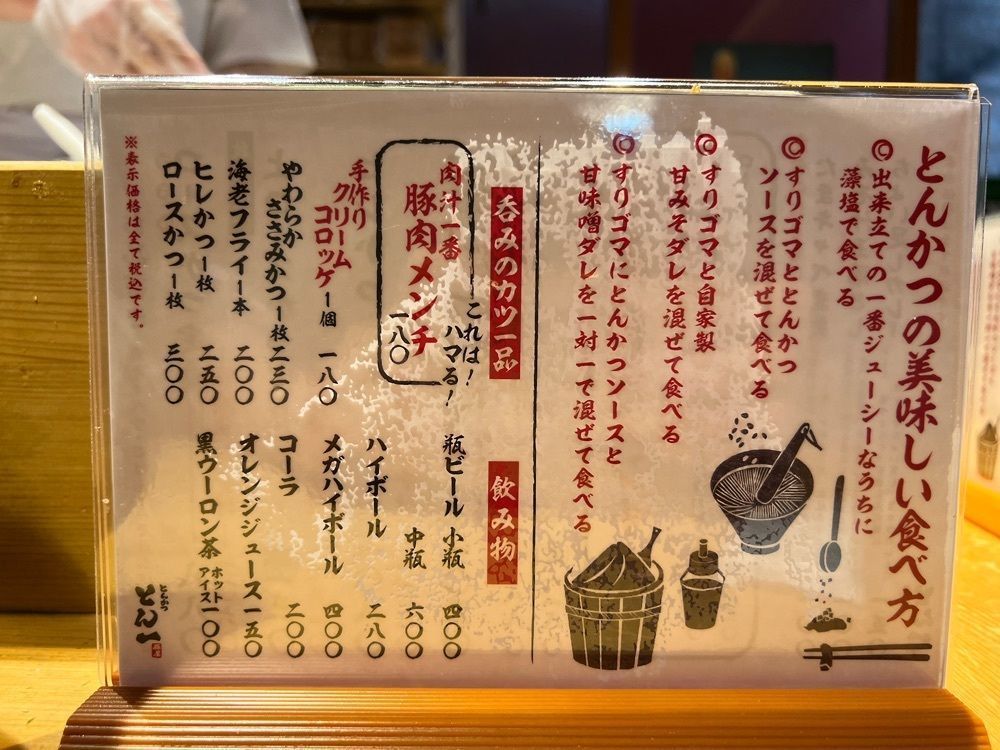 とんかつの美味しい食べ方
◎出来立ての一番ジューシーなうちに
藻塩で食べる
◎すりゴマととんかつ
ソースを混ぜて食べる
◎すりゴマと自家製
甘みそダレを混ぜて食べる
◎すりゴマにとんかつソースと
甘味噌ダレを一対一で混ぜて食べる
呑みのカツ一品
これは!
ハマる!
肉汁一番
豚肉メンチ
一八〇
手作り
クリーム
コロッケ一個 一八〇
やわらか
ささみかつ一枚 二三〇
海老フライ一本 二〇〇
ヒレかつ一枚 二五〇
ロースかつ一枚 三〇〇
※表示価格は全て税込です。
飲み物
瓶ビール 小瓶 四〇〇
中瓶 六〇〇
ハイボール 二八〇
メガハイボール 四〇〇
コーラ 二〇〇
オレンジジュース 一五〇
黒ウーロン茶 ホット アイス 一〇〇
とんかつ
とん一